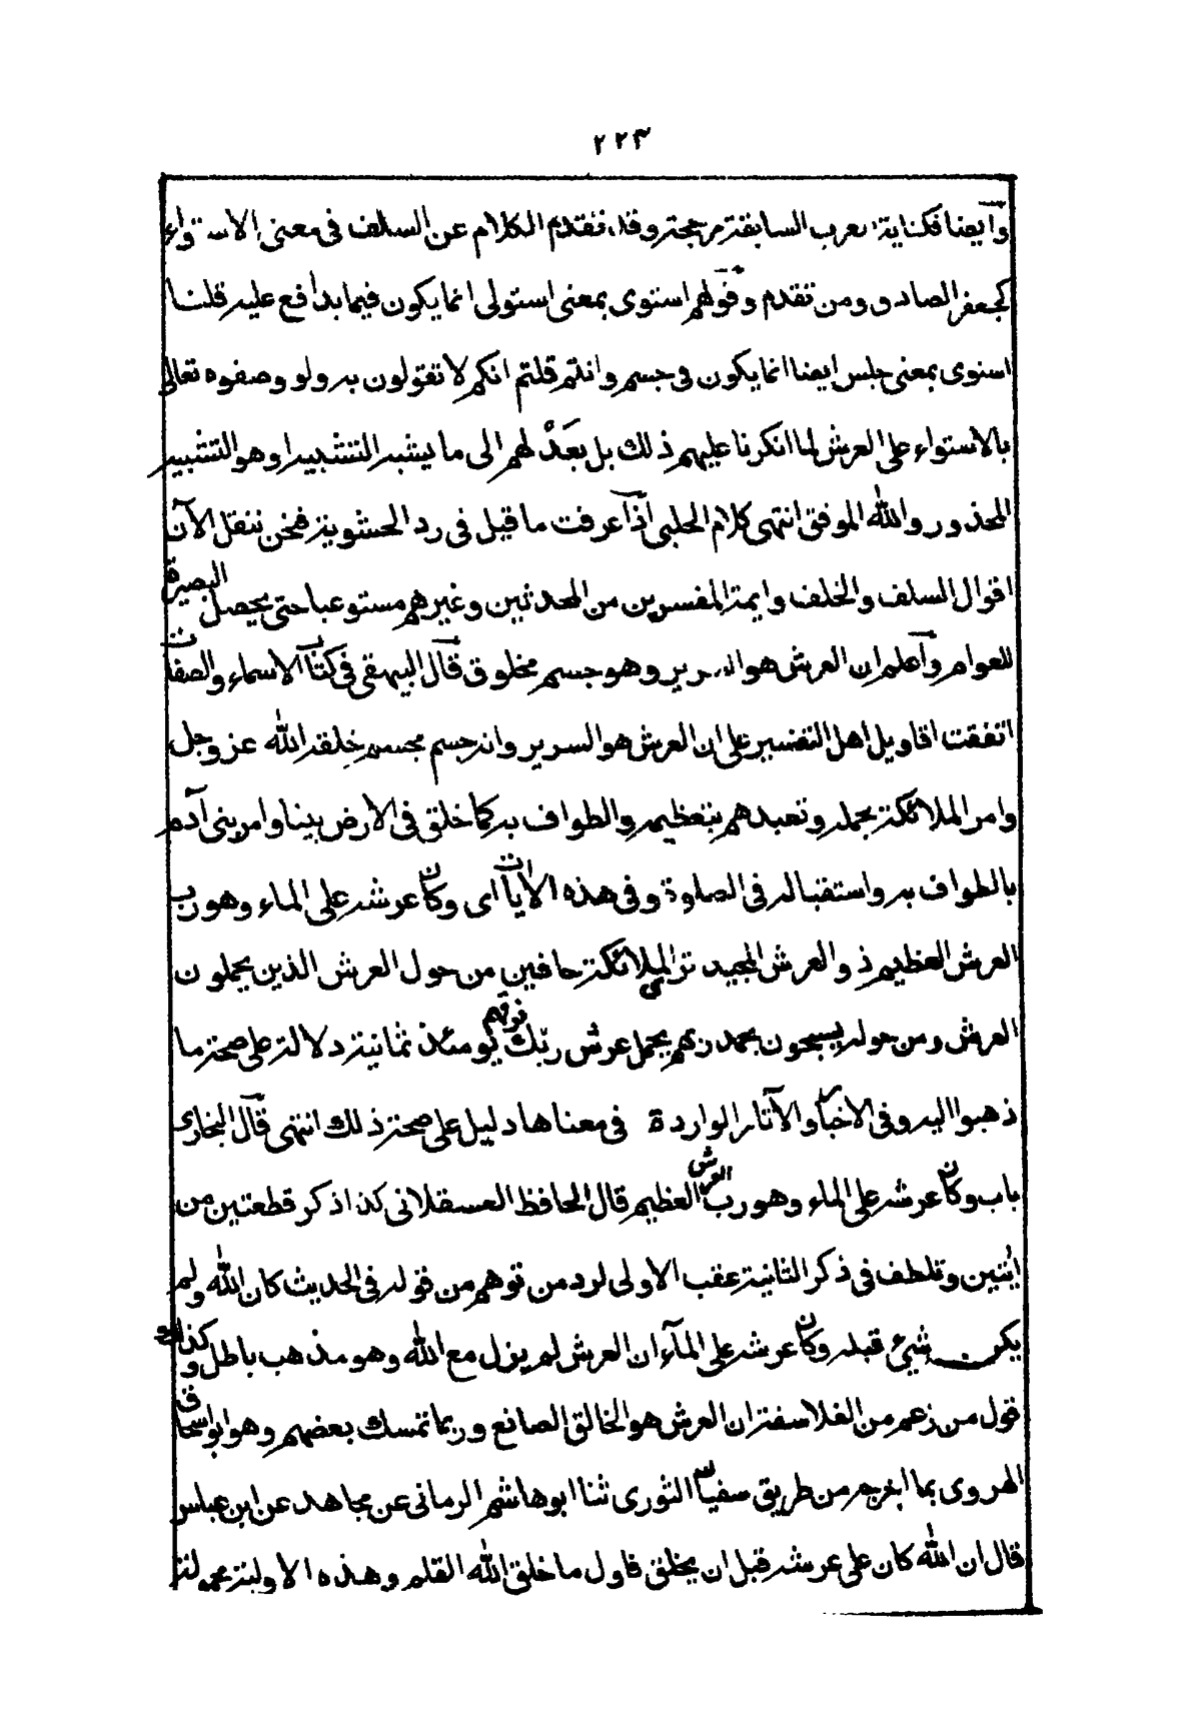 ٢٢٣
وأيضا فكناية العرب السابقة مرجحة وقد تقدم الكلام عن السلف فى معنى الاستواء
كجعفر الصادق ومن تقدم وقولهم استوى بمعنى استولى انما يكون فيما يدافع عليه قلنا
استوى بمعنى جلس ايضا انما يكون فى جسم وانتم قلتم انكم لا تقولون به ولو وصفوه تعالى
بالاستواء على العرش لما انكرنا عليهم ذلك بل بعد لهم الى ما يشبه التشبيه او هو التشبيه
المحذور والله الموفق انتهى كلام الحلبى اذا عرفت ما قيل فى رد الحشوية فنحن ننقل الآن
اقوال السلف والخلف وايمة المفسرين من المحدثين وغيرهم مستوعبا حتى يحصل البصيرة
للعوام واعلم ان العرش هو السرير وهو جسم مخلوق قال البيهقى فى كتاب الاسماء والصفات
اتفقت اقاويل اهل التفسير على ان العرش هو السرير وانه جسم مجسم خلقه الله عز وجل
وامر الملائكة بحمله وتعبدهم بتعظيمه والطواف به كما خلق فى الارض بيتا وامر بنى آدم
بالطواف به واستقباله فى الصلوة وفى هذه الايات اى وكان عرشه على الماء وهو رب
العرش العظيم ذو العرش المجيد ترى الملائكة حافين من حول العرش الذين يحملون
العرش ومن حوله يسبحون بحمد ربهم يحمل عرش ربك فوقهم يومئذ ثمانية دلالة على صحة ما
ذهبوا اليه وفى الاخبار والآثار الواردة فى معناها دليل على صحة ذلك انتهى قال البخارى
باب وكان عرشه على الماء وهو رب العرش العظيم قال الحافظ العسقلانى كذا ذكر قطعتين من
ايتين وتلطف فى ذكر الثانية عقب الاولى لرد من توهم من قوله فى الحديث كان الله ولم
يكن شئ قبله وكان عرشه على المآء ان العرش لم يزل مع الله وهو مذهب باطل وكذا
قول من زعم من الفلاسفة ان العرش هو الخالق الصانع وربما تمسك بعضهم وهو ابو اسحاق
الهروى بما اخرجه من طريق سفيان الثورى ثنا ابو هاشم الرمانى عن مجاهد عن ابن عباس
قال ان الله كان على عرشه قبل ان يخلق فاول ما خلق الله القلم وهذه الاولية محمولة